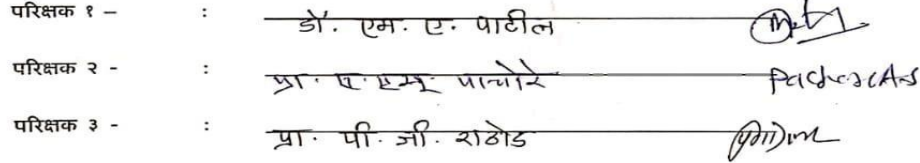 परिक्षक १ – : डॉ. एम. ए. पाटील
परिक्षक २ - : प्रा. ए. एम. पाचोरे
परिक्षक ३ - : प्रा. पी. जी. राठोड